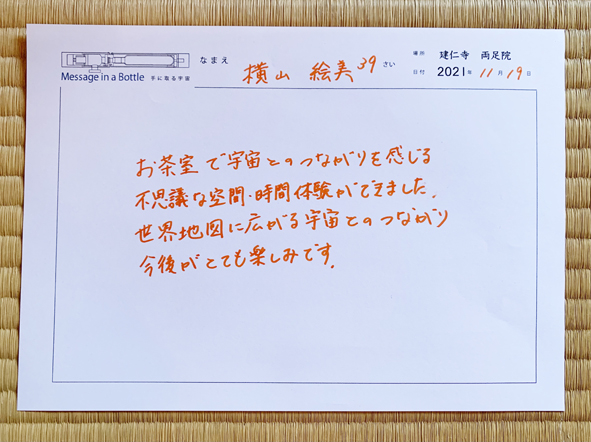 Message in a Bottle 手に取る宇宙
なまえ 横山 絵美 39 さい
場所 建仁寺 両足院
日付 2021年 11月 19日
お茶室で宇宙とのつながりを感じる
不思議な空間・時間体験ができました。
世界地図に広がる宇宙とのつながり
今後がとても楽しみです。